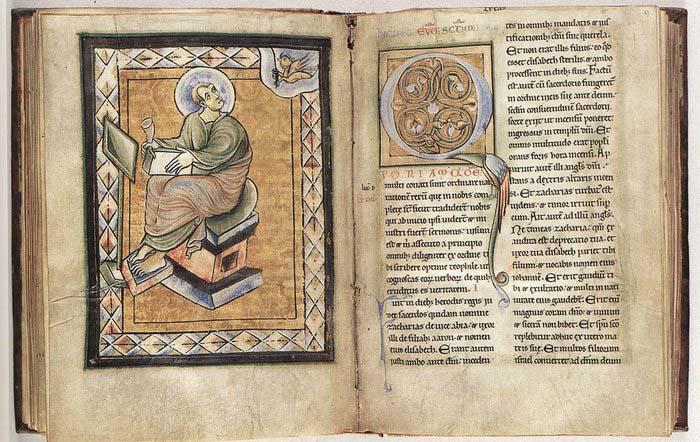 EVG̅ SC̅D̅M
Q
UONIAM QVIDE
multi conati sunt ordinare nar
rationem reru que in nobis con
plete sc̅t sicut tradider̅t nobis
qui ab inicio ipsi uider̅t et mi
nistri fuer̅t sermonis uisum
est et m̅ assecuto a principio
omnib; diligenter ex ordine ti
bi scribere optime theophile ut
cognoscas eor̅ uerbor̅ de quib;
eruditus es ueritatem.
Fuit in dieb; herodis regis iu
dee sacerdos quidam nomine
zacharias de uice abia & uxor
illi de filiab; aaron & nomen
eius elisabeth. Erant autem
iusti ambo ante dm̅ inceden
tes in omnib; mandatis & ius
tificationib; dn̅i sine querela.
Et non erat illis filius eo qd̅
esset elisabeth sterilis & ambo
processent in dieb; suis. Factu̅
est aute̅ cu̅ sacerdotio fungeret̅
in ordine uicis sue ante deum.
scdm̅ consuetudine̅ sacerdotii
sorte exiit ut incensu̅ poneret
ingressus in templu̅ dn̅i. Et
omnis multitudo erat populi
orans foris hora incensi. Ap
paruit aute̅ illi angls̅ dn̅i
stans a dextris altaris incen
si. Et zacharias turbat̅ est
uidens & timor irruit sup
eum. Ait aute̅ ad illu̅ angls̅.
Ne timeas zacharia: qm̅ ex
audita est deprecatio tua. et
uxor tua elisabeth pariet tibi
filium & uocabis nomen eius
iohannem. Et erit gaudiu̅ ti
bi & exultatio. & multi in nati
uitate eius gaudebt̅. Et eni̅
magnus coram dn̅o & uinum
& sicera̅ non bibet. Et spu̅ sco̅
replebitur adhuc ex utero ma
tris sue. Et multos filiorum
israel conuertet ad dn̅m deum